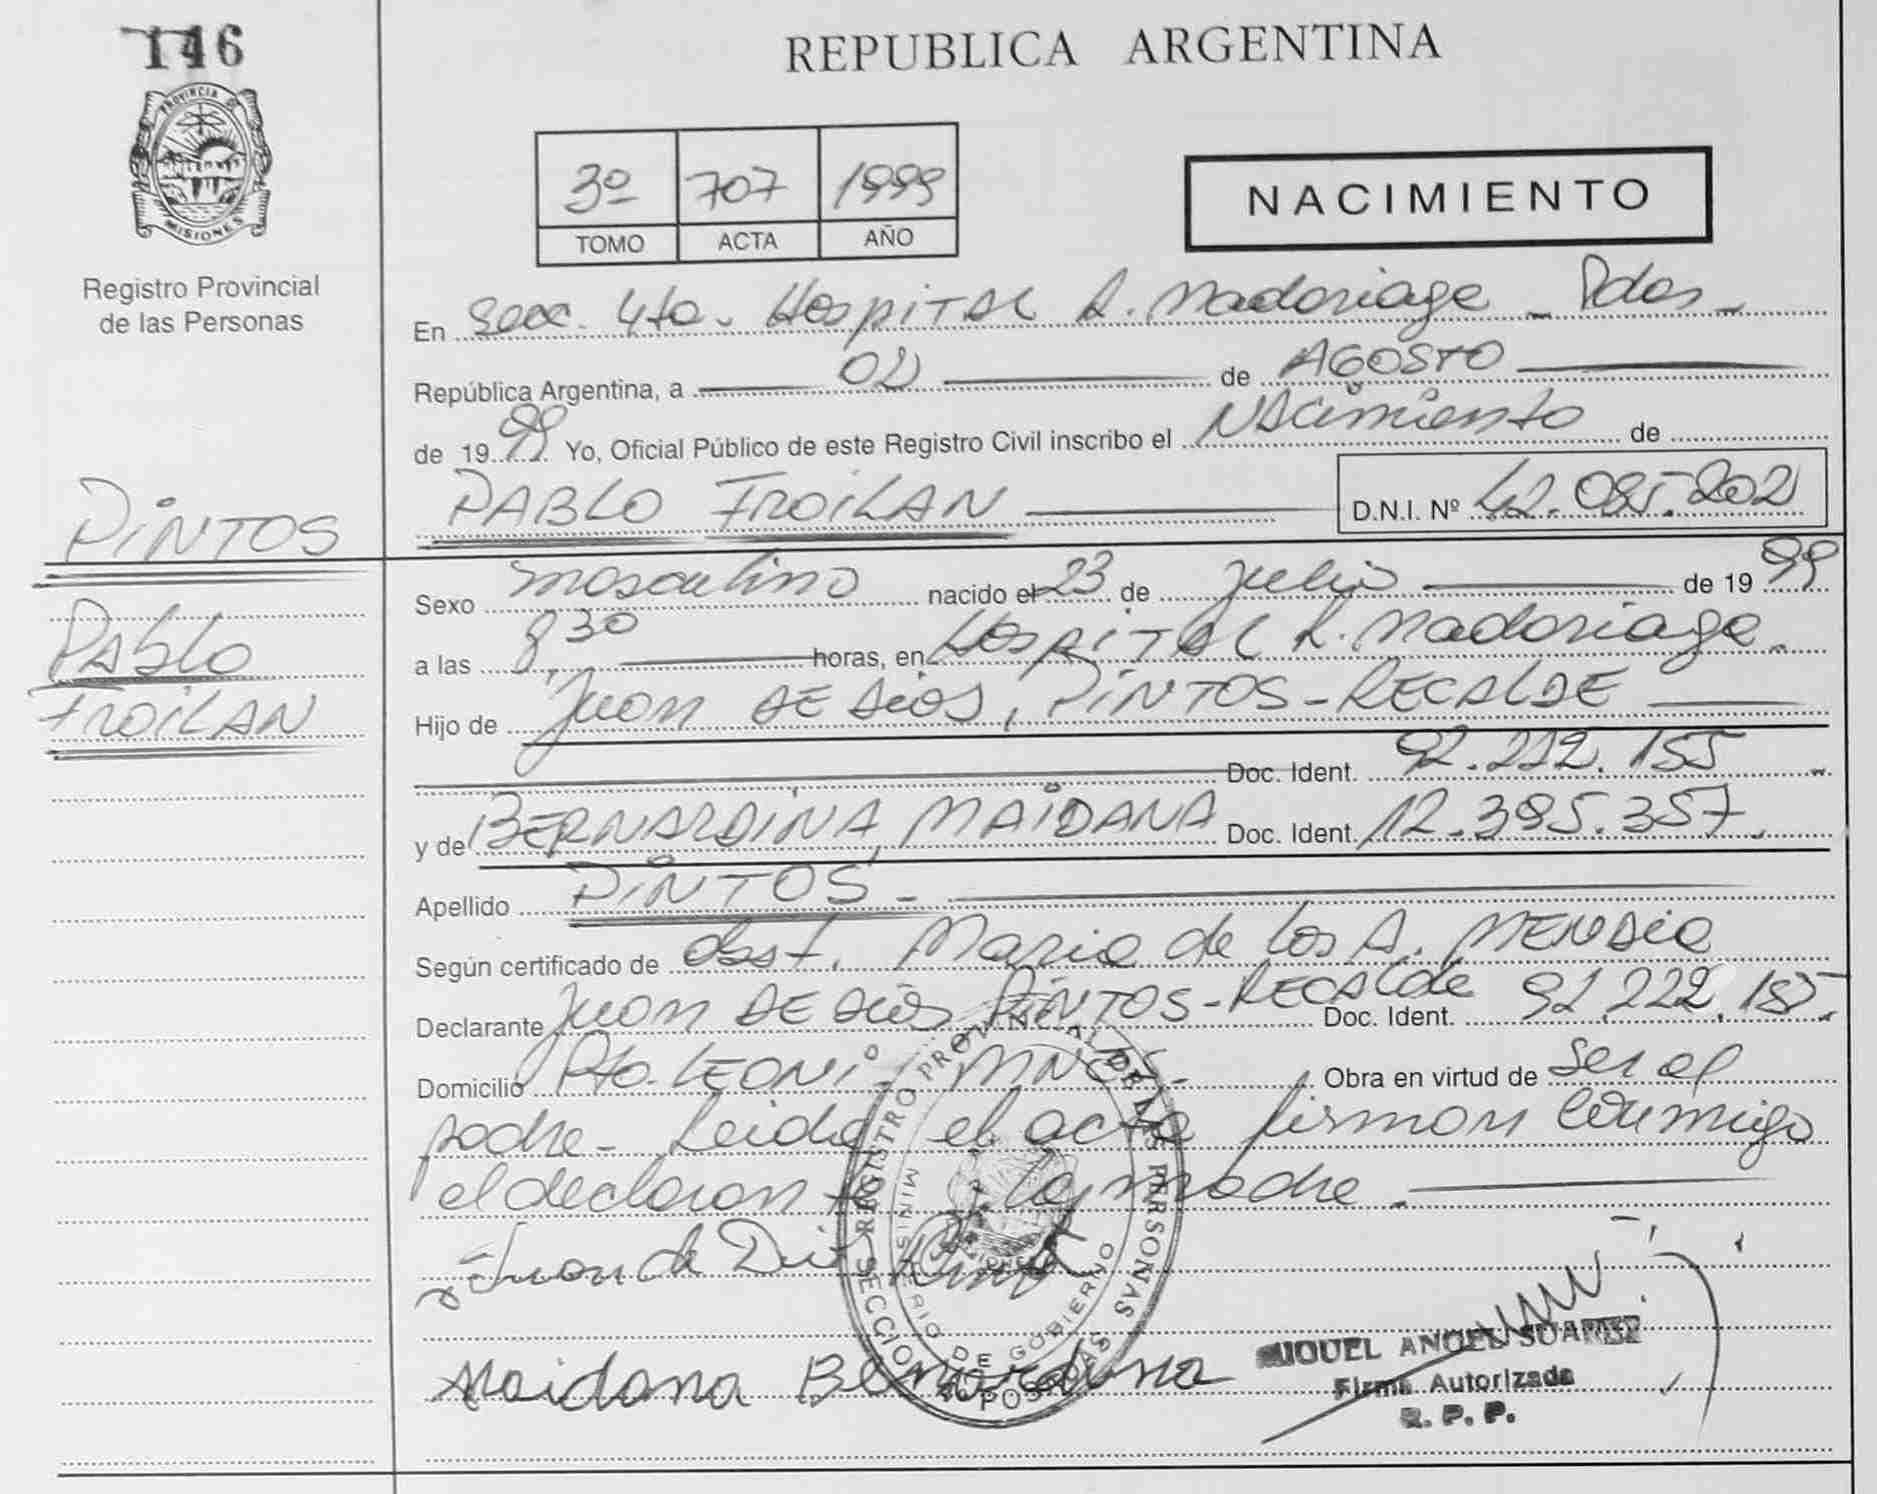 146
REPUBLICA ARGENTINA
PROVINCIA D
MISIONES
Registro Provincial
de las Personas
3º 707 1999
TOMO ACTA AÑO
NACIMIENTO
En Secc. 4ta. Hospital R. Madariaga - Pdas -
República Argentina, a 02 de AGOSTO
de 1999 Yo, Oficial Público de este Registro Civil inscribo el Nacimiento de
PABLO FROILAN D.N.I. Nº 42.085.202
PINTOS
Pablo
FROILAN
Sexo masculino nacido el 23 de Julio de 1999
a las 8,30 horas, en Hospital R. Madariaga.
Hijo de Juan DE Dios, PINTOS-RECALDE
Doc. Ident. 92.222.155
y de BERNARDINA, MAIDANA Doc. Ident. 12.395.357.
Apellido PINTOS -
Según certificado de obst. Maria de los A.
Declarante Juan DE Dios PINTOS-RECALde Doc. Ident. 92.222.155.
Domicilio Pto. LEONI - MNES - Obra en virtud de Ser el
padre - Leida el acta firman conmigo
el declarante y la madre.
Juan de Dios
Maidana Bernardina
REGISTRO PROVINCIAL DE LAS PERSONAS
MINISTERIO DE GOBIERNO
SECCION POSADAS
MIGUEL ANGEL SUAREZ
Firma Autorizada
R. P. P.